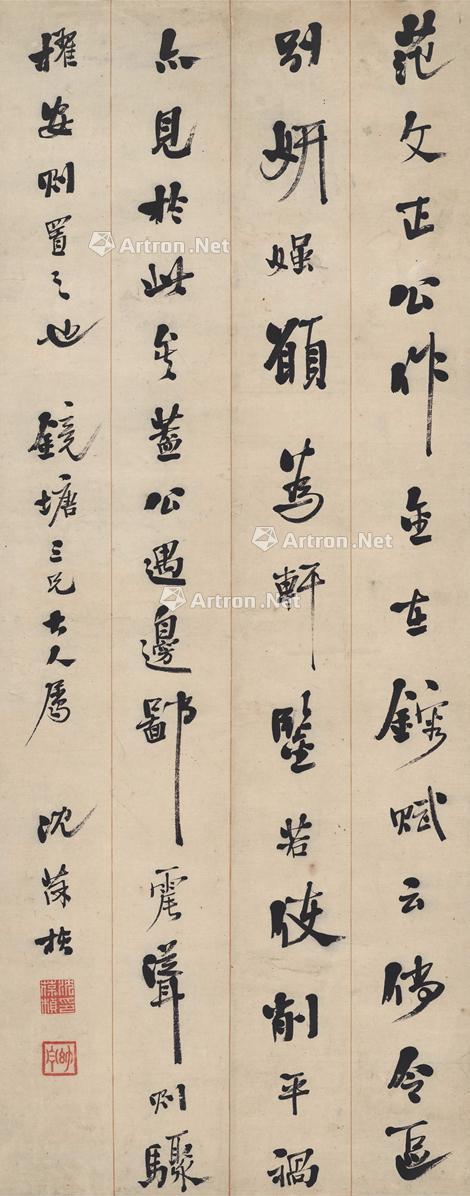 范文正公作金在鎔賦云倘令區
別妍媸願為軒鑒若使削平禍
亦見於此矣蓋公遇邊鄙震聳則驟
擢安則置之也 鏡塘三兄大人屬 沈葆楨
沈葆楨印
幼丹
Artron.Net
Artron.Net
Artron.Net